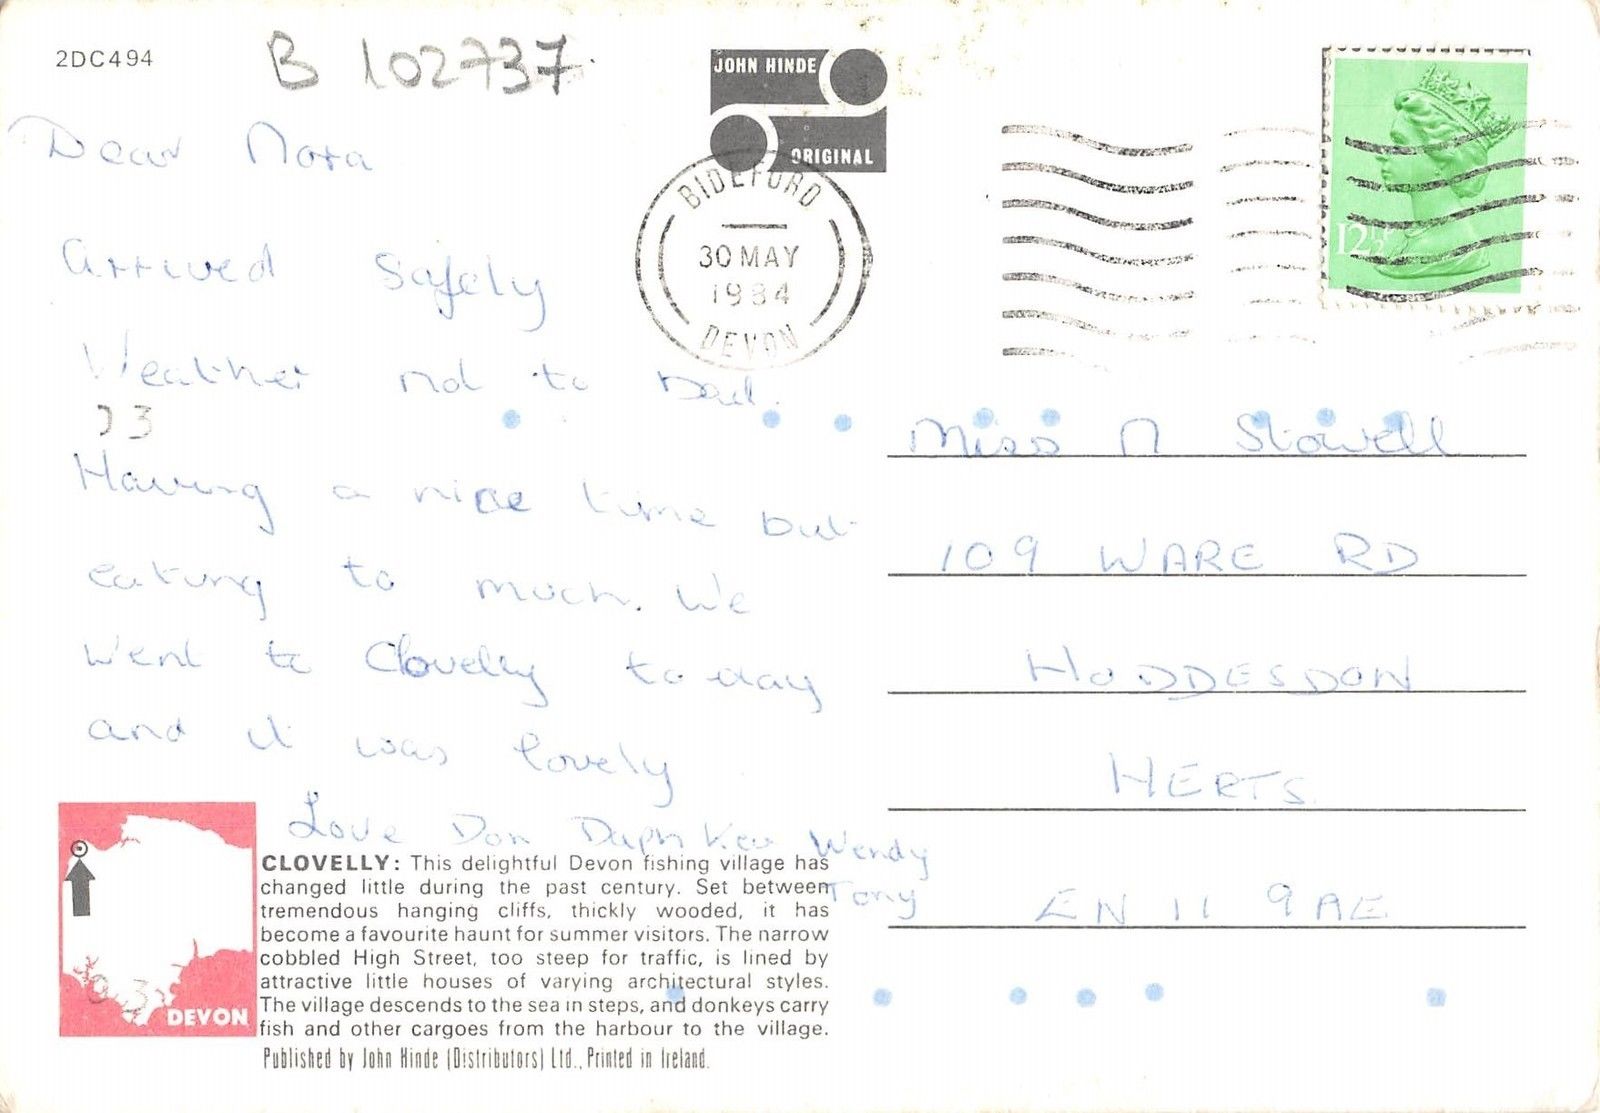 2DC494
B 102737.
JOHN HINDE
ORIGINAL
BIDEFORD
30 MAY
1984
DEVON
12½P
Dear Nora
Arrived Safely
Weather not to bad.
73
Having a nice time but
eating to much. We
went to Clovelly to-day
and it was lovely
Love Don Daph Kev Wendy
Tony
Miss N Stowell
109 WARE RD
HODDESDON
HERTS.
EN 11 9AE
DEVON
CLOVELLY: This delightful Devon fishing village has
changed little during the past century. Set between
tremendous hanging cliffs, thickly wooded, it has
become a favourite haunt for summer visitors. The narrow
cobbled High Street, too steep for traffic, is lined by
attractive little houses of varying architectural styles.
The village descends to the sea in steps, and donkeys carry
fish and other cargoes from the harbour to the village.
Published by John Hinde (Distributors) Ltd., Printed in Ireland.